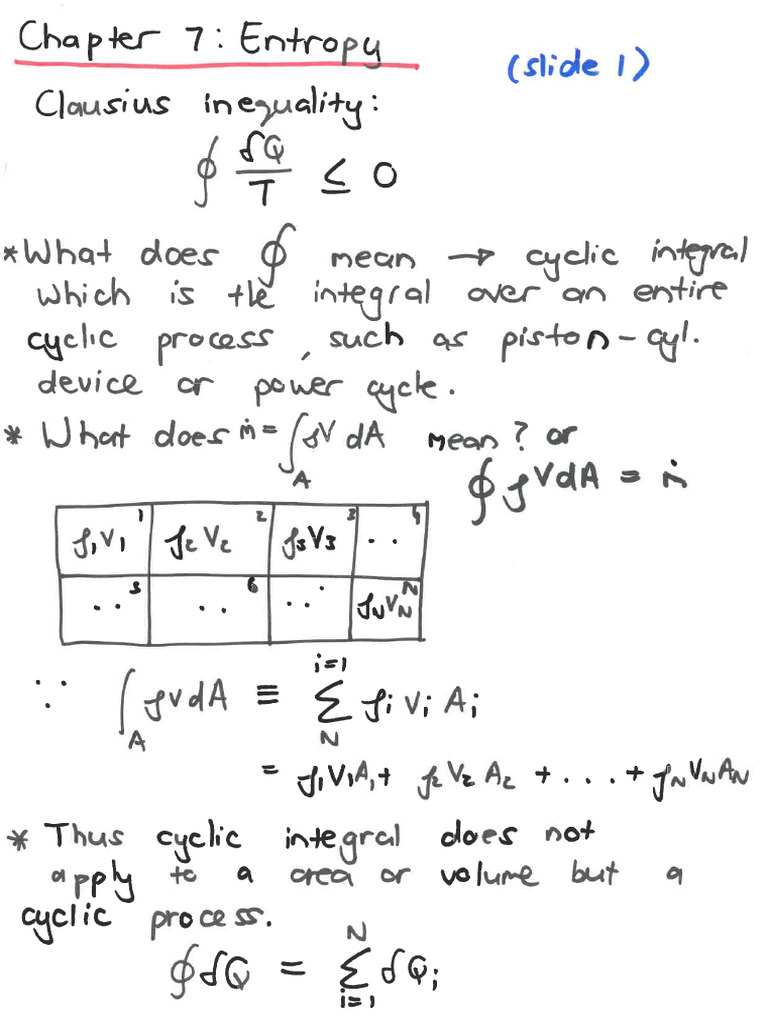 Chapter 7: Entropy
(slide 1)
Clausius inequality:
∮ δQ/T ≤ 0
*What does ∮ mean → cyclic integral
which is the integral over an entire
cyclic process, such as piston-cyl.
device or power cycle.
* What does ṁ = ∫_A ρV dA mean? or
∮ ρVdA = ṁ
ρ₁V₁ 1 ρ₂V₂ 2 ρ₃V₃ 3 .. 4
.. 5 .. 6 ... ρ_NV_N N
∵ ∫_A ρVdA ≡ Σ_N^{i=1} ρᵢVᵢAᵢ
= ρ₁V₁A₁ + ρ₂V₂A₂ + . . . + ρ_NV_NA_N
* Thus cyclic integral does not
apply to a area or volume but a
cyclic process.
∮δQ = Σ_{i=1}^N δQᵢ